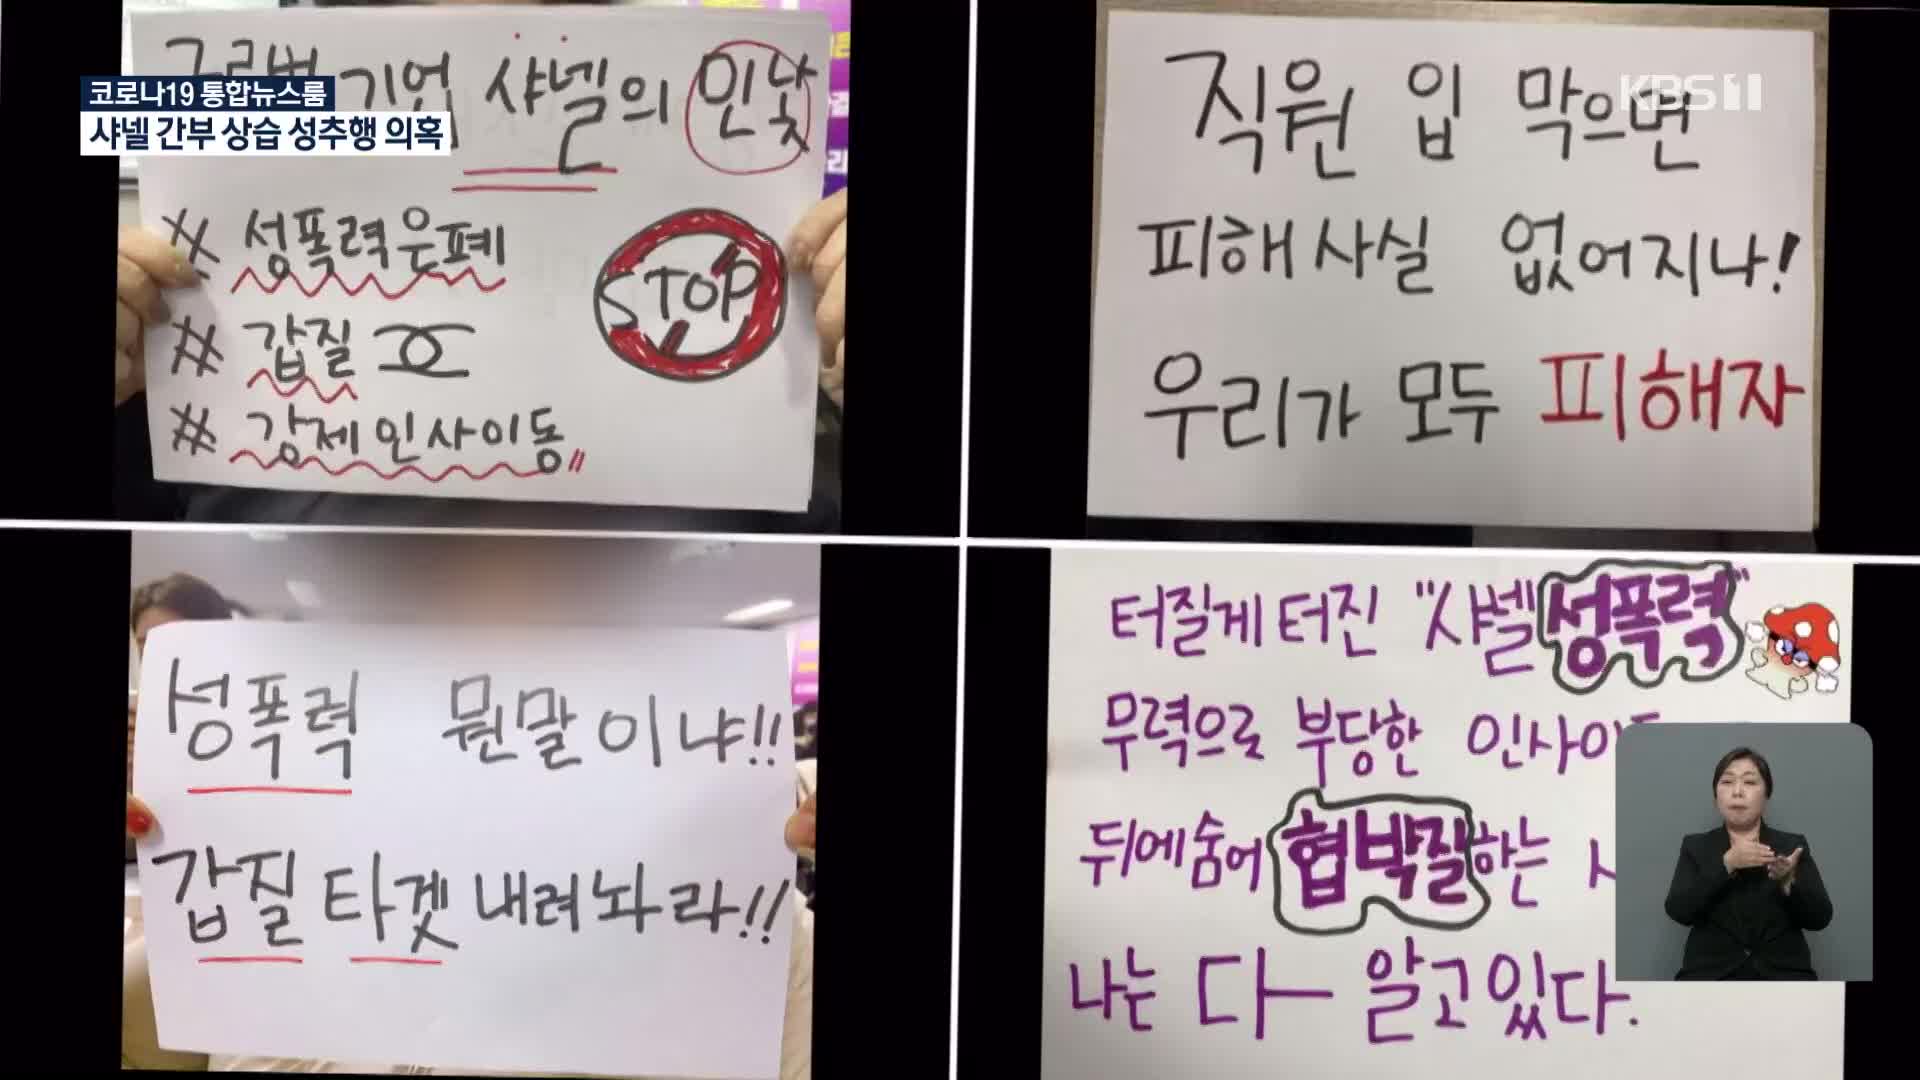 코로나19 통합뉴스룸
샤넬 간부 상습 성추행 의혹
KBS 1
기업 샤넬의 민낯
# 성폭력은폐
# 갑질
# 강제인사이동
STOP
직원 입 막으면
피해사실 없어지나!
우리가 모두 피해자
성폭력 뭔말이냐!!
갑질 타겟 내려놔라!!
터질게 터진 "샤넬 성폭력"
무력으로 부당한 인사이
뒤에숨어 협박질하는
나는 다- 알고있다.